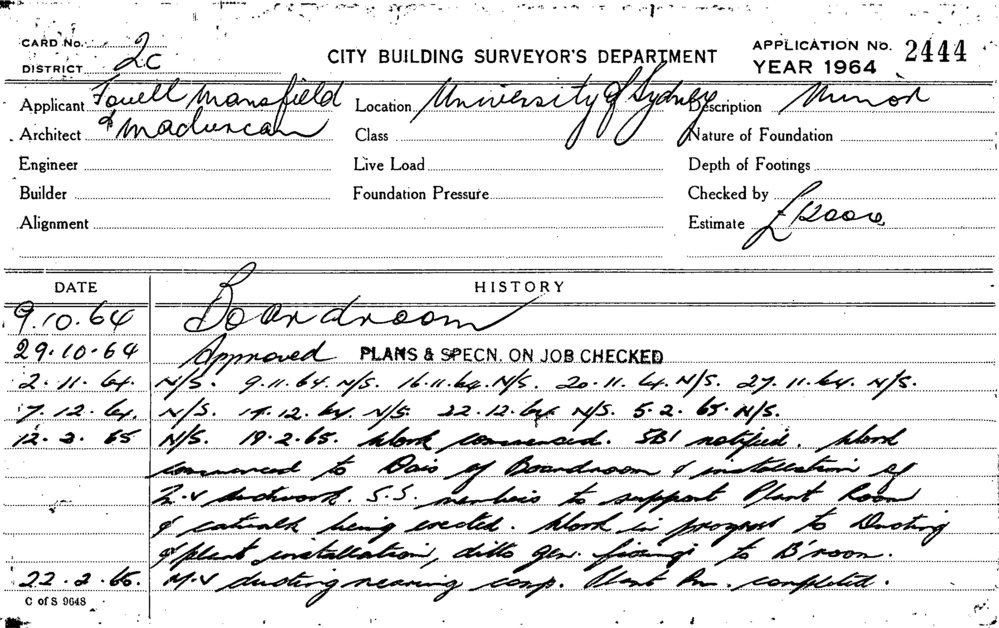 CARD No. 2C
DISTRICT
CITY BUILDING SURVEYOR'S DEPARTMENT
APPLICATION No. 2444
YEAR 1964
Applicant Fowell Mansfield Location University of Sydney Description Minor
Architect & Maclurcan Class Nature of Foundation
Engineer Live Load Depth of Footings
Builder Foundation Pressure Checked by
Alignment Estimate
DATE HISTORY
9.10.64 Boardroom
29.10.64 Approved PLANS & SPECN. ON JOB CHECKED
2.11.64. N/S. 9.11.64. N/S. 16.11.64. N/S. 20.11.64. N/S. 27.11.64. N/S.
7.12.64. N/S. 17.12.64. N/S. 22.12.64 N/S. 5.2.65. N/S.
12.2.65 N/S. 19.2.65. Work commenced. SBI notified. Work
commenced to Dais of Boardroom & installation of
M.V ductwork. S.S. members to support Plant Room
& catwalk being erected. Work in progress to Ducting
& plant installation, ditto gen. fixings to B'room.
22.2.65. M.V ducting nearing comp. Plant Rm. completed.
C of S 9648